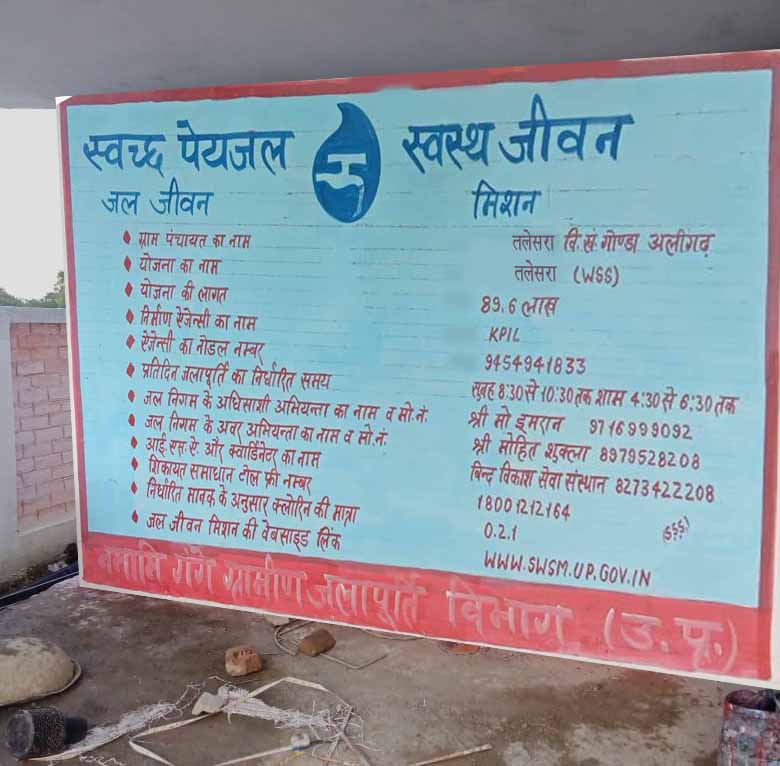 स्वच्छ पेयजल स्वस्थ जीवन
जल जीवन मिशन
ग्राम पंचायत का नाम तलेसरा वि.खं. गोण्डा अलीगढ़
योजना का नाम तलेसरा (WSS)
योजना की लागत 89.6 लाख
निर्माण ऐजेन्सी का नाम KPIL
ऐजेन्सी का नोडल नम्बर 9454941833
प्रतिदिन जलापूर्ति का निर्धारित समय सुबह 8:30 से 10:30 तक शाम 4:30 से 6:30 तक
जल निगम के अधिसाशी अभियन्ता का नाम व मो.नं. श्री मो इमरान 9716999092
जल निगम के अवर अभियन्ता का नाम व मो.नं. श्री मोहित शुक्ला 8979528208
आई.एस.ए. और क्वार्डिनेटर का नाम बिन्द विकाश सेवा संस्थान 8273422208
शिकायत समाधान टोल फ्री नम्बर 18001212164
निर्धारित मानक के अनुसार क्लोरिन की मात्रा 0.2.1
जल जीवन मिशन की वेबसाइड लिंक WWW.SWSM.UP.GOV.IN
नमामि गंगे ग्रामीण जलापूर्ति विभाग (उ.प्र.)